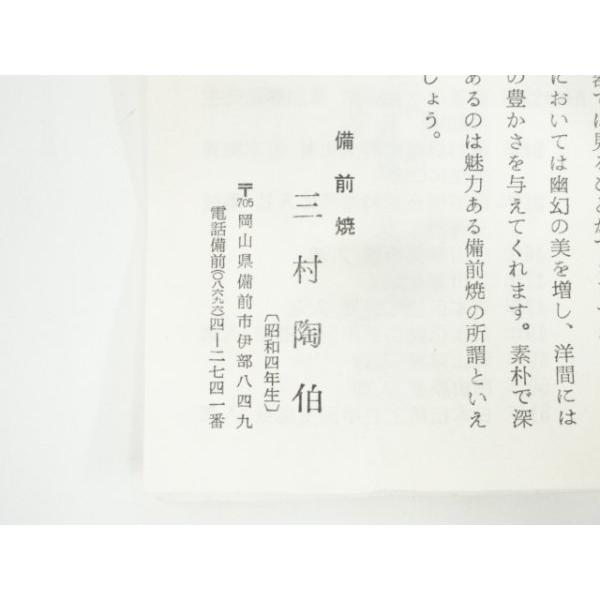 においては幽幻の美を増し、洋間には
の豊かさを与えてくれます。素朴で深
あるのは魅力ある備前焼の所謂といえ
しょう。
備前焼
三村陶伯
〔昭和四年生〕
〒705 岡山県備前市伊部八四九
電話備前(〇八六九六)四ー二七四一番